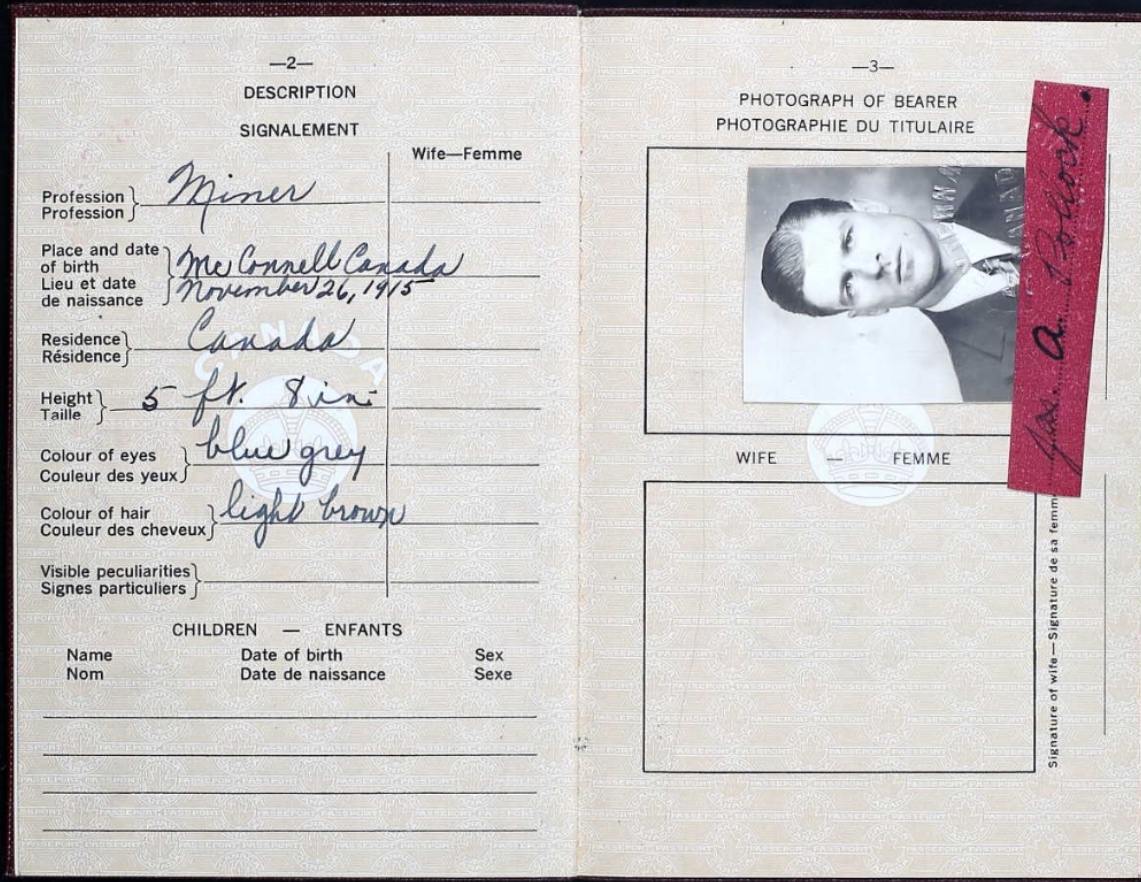 —2—
DESCRIPTION
SIGNALEMENT
Wife—Femme
Profession Miner
Profession
Place and date
of birth McConnell Canada
Lieu et date November 26, 1915
de naissance
Residence Canada
Résidence
Height 5 ft. 8 ins
Taille
Colour of eyes blue grey
Couleur des yeux
Colour of hair light brown
Couleur des cheveux
Visible peculiarities
Signes particuliers
CHILDREN — ENFANTS
Name Date of birth Sex
Nom Date de naissance Sexe
—3—
PHOTOGRAPH OF BEARER
PHOTOGRAPHIE DU TITULAIRE
WIFE — FEMME
Signature of wife — Signature de sa femme
CANADA